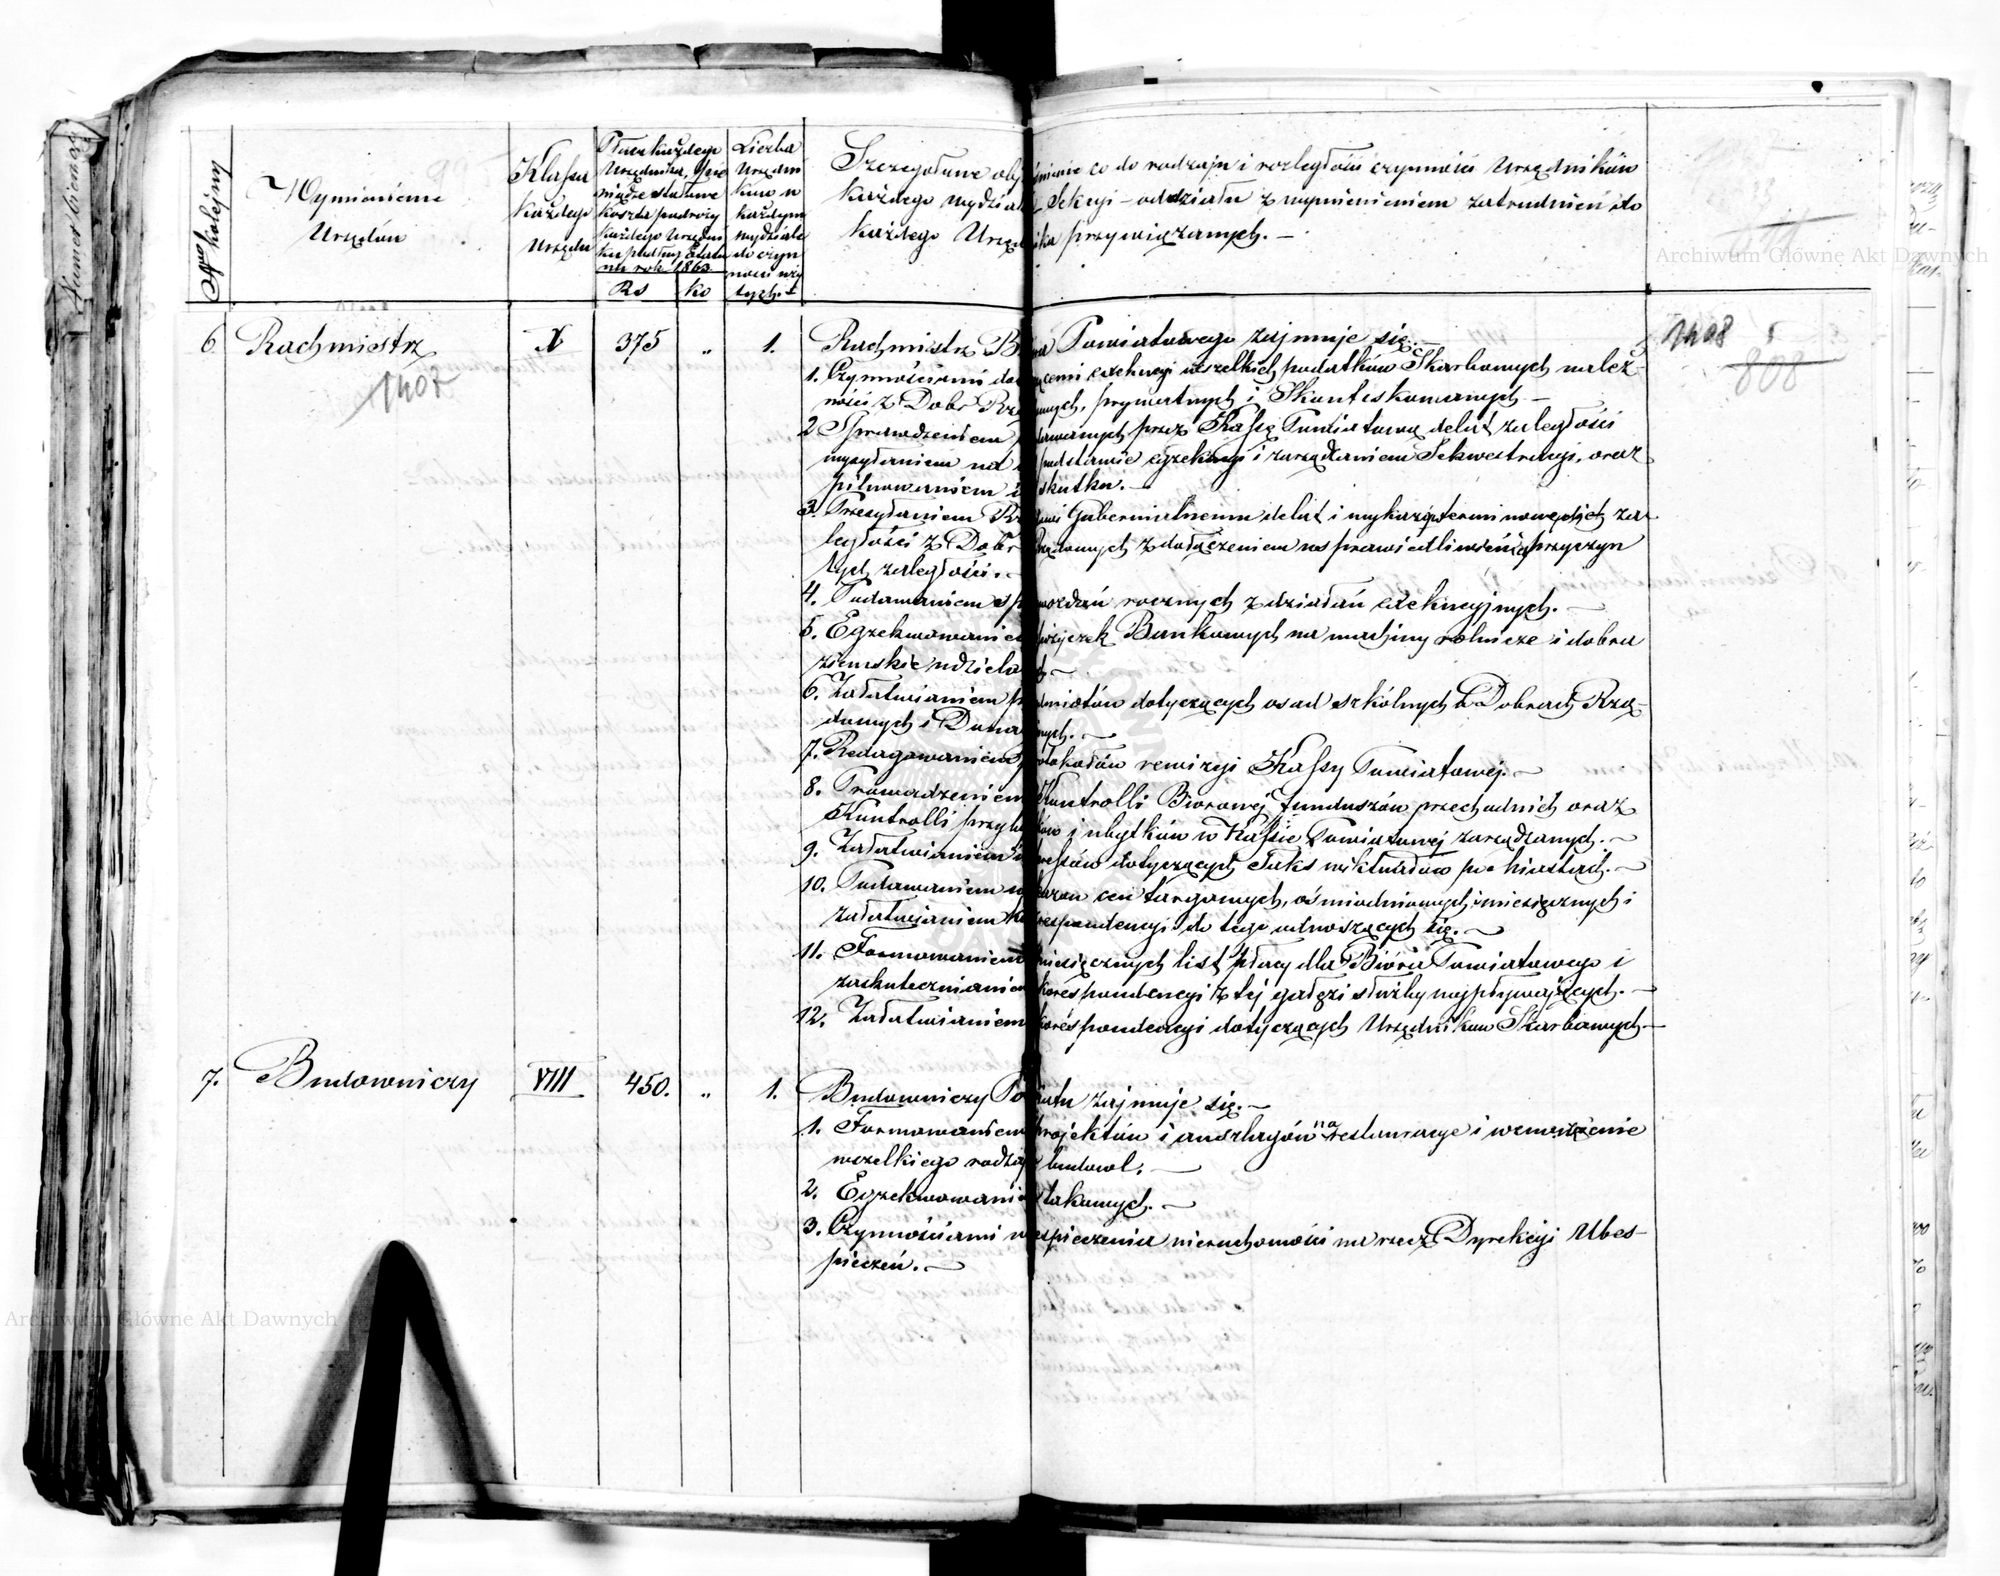 Nro kolejny
Wymienienie
Urzędów
Klassa
każdego
Urzędu
Płaca każdego
Urzędnika,
niądze stołowe
koszta podróży
każdego Urzędni
ka podług Etatu
na rok 1863
Rs ko
Liczba
Urzędni
ków w
każdym
wydziale
do czyn
ności uży
tych.
Szczegółowe obja śnienie co do rodzaju i rozległości czynności Urzędników
każdego wydziału Sekcyi - oddziału z wymienieniem zatrudnień do
każdego Urzędnika przywiązanych. -
Archiwum Główne Akt Dawnych
6. Rachmistrz X 375 „ 1. Rachmistrz Biura Powiatowego zajmuje się. -
1407
1408
808
1. Czynnościami dotyczącemi exekucyi wszelkich podatków Skarbowych należ-
ności z Dobr Rządowych, prywatnych i Skonfiskowanych -
2 Sprawdzeniem podawanych przez Kassę Powiatową delat zaległości
wysyłaniem na ich podstawie egzekucyi i zarządzaniem Sekwestracyi, oraz
pilnowaniem ich skutku. -
3. Przesyłaniem Rządowi Gubernialnemu delat i wykazów terminowych za-
ległości z Dobr Rządowych z dołączeniem usprawiedliwienia przyczyn
tych zaległości. -
4. Podawaniem sprawozdań rocznych z działań exekucyjnych. -
5. Egzekwowaniem pożyczek Bankowych na machiny rolnicze i dobra
ziemskie udzielonych -
6. Załatwianiem przedmiotów dotyczących osad szkólnych w Dobrach Rzą-
dowych i Donacyjnych. -
7. Redagowaniem protokółów rewizyi Kassy Powiatowej. -
8. Prowadzeniem Kontrolli Biorowej funduszów przechodnich oraz
Kontrolli przybytków i ubytków w Kassie Powiatowej zarządzanych. -
9. Załatwianiem interessów dotyczących Taks wiktuałów po Miastach. -
10. Podawaniem wykazów cen targowych, ośmiodniowych i miesięcznych i
załatwianiem korrespondencyi do tego odnoszących się. -
11. Formowaniem miesięcznych list płacy dla Bióra Powiatowego i
zaskutecznianiem korespondencyi z tej gałęzi służby wypływających. -
12. Załatwianiem korespondencyi dotyczących Urzędników Skarbowych -
7. Budowniczy VIII 450. „ 1. Budowniczy Powiatu zajmuje się. -
1. Formowaniem projektów i anszlagów na restauracye i wznoszenie
wszelkiego rodzaju budowl. -
2. Egzekwowaniem takowych. -
3. Czynnościami ubespieczenia nieruchomości na rzecz Dyrekcyi Ubes-
pieczeń. -
Archiwum Główne Akt Dawnych